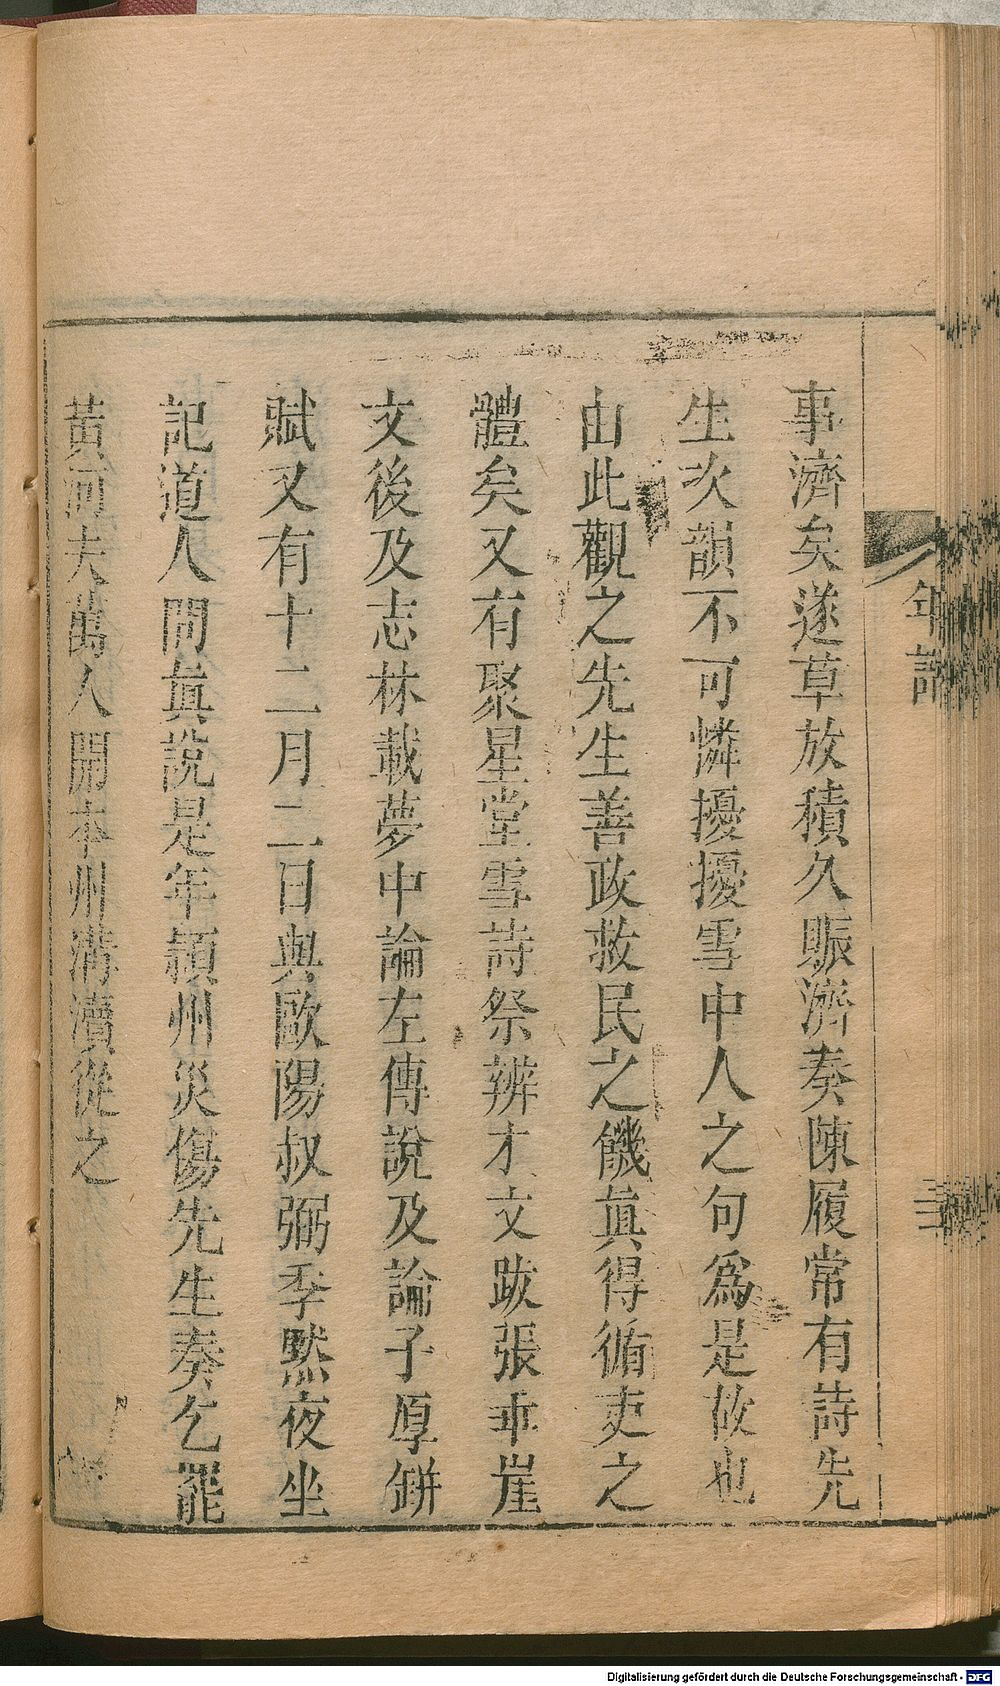 事濟矣遂草放積久賑濟奏陳履常有詩先
生次韻不可憐擾擾雪中人之句爲是故也
由此觀之先生善政救民之饑眞得循吏之
體矣又有聚星堂雪詩祭辨才文跋張乖崖
文後及志林載夢中論左傳說及論子厚缾
賦又有十二月二日與歐陽叔弼季默夜坐
記道人問眞說是年潁州災傷先生奏乞罷
黃河夫萬人開本州溝瀆從之
年譜
三
Digitalisierung gefördert durch die Deutsche Forschungsgemeinschaft - DFG